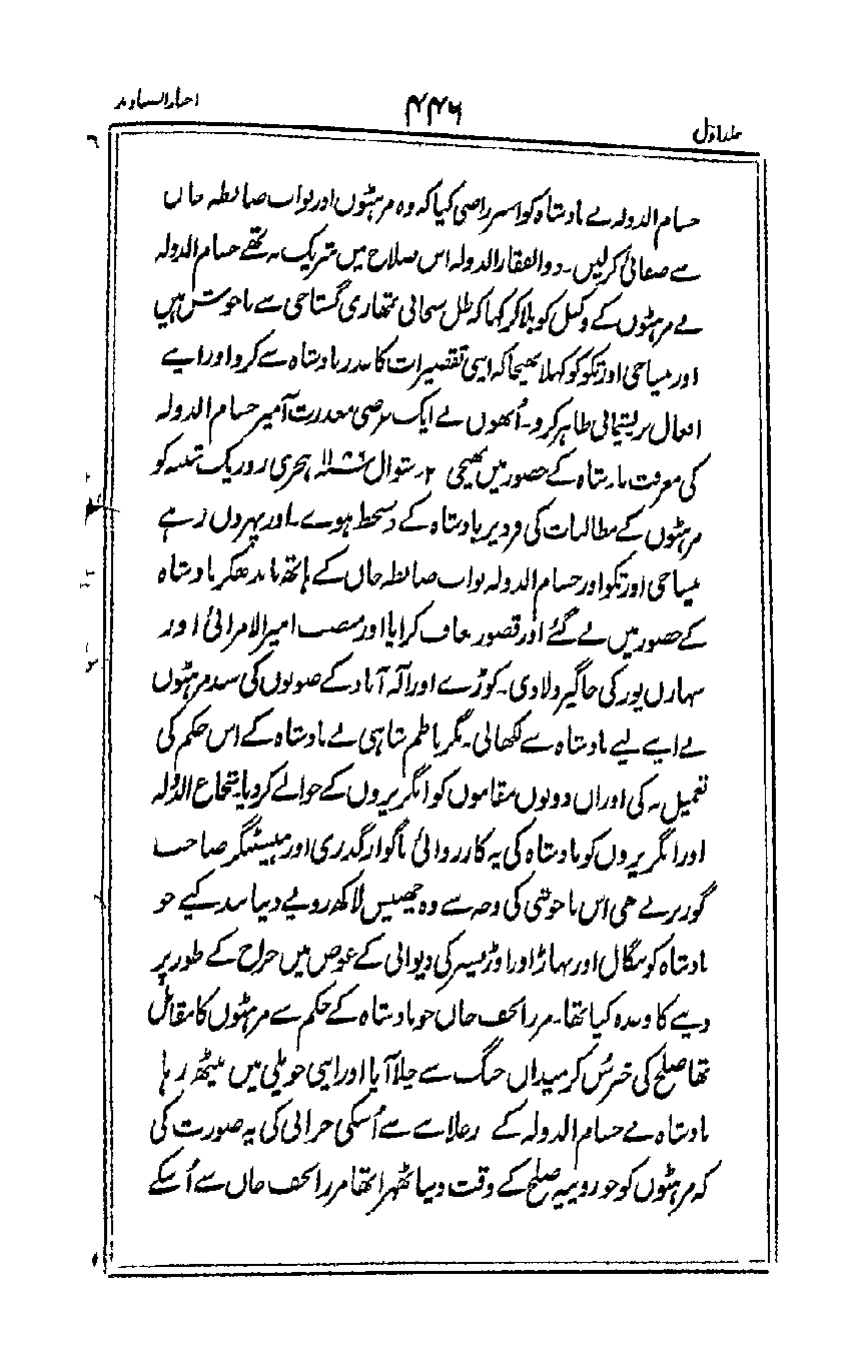 اخبار الصنادید
۴۴۶
جلد اول
حسام الدولہ نے بادشاہ کو اسپر راضی کیا کہ وہ مرہٹوں اور نواب ضابطہ خاں
سے صفائی کرلیں۔ ذوالفقار الدولہ اس صلاح میں شریک نہ تھے حسام الدولہ
نے مرہٹوں کے وکیل کو بلا کر کہا کہ ظل سبحانی تمھاری گستاخی سے ناخوش ہیں
اور میباجی اور تکو کو کہلا بھیجا کہ اپنی تقصیرات کا عذر بادشاہ سے کرو اور اپنے
افعال پر پشیمانی ظاہر کرو۔ اُنھوں نے ایک عرضی معذرت آمیز حسام الدولہ
کی معرفت بادشاہ کے حضور میں بھیجی ۲۔ شوال ہجری روز یک شنبہ کو
مرہٹوں کے مطالبات کی فرد پر بادشاہ کے دستخط ہوے۔ اور پہر دن رہے
میباجی اور تکو اور حسام الدولہ نواب ضابطہ خاں کے ہاتھ باندھکر بادشاہ
کے حضور میں لے گئے اور قصور معاف کرایا اور منصب امیر الامرائی اور
سہارن پور کی جاگیر دلا دی۔ کوڑے اور الہ آباد کے صوبوں کی سند مرہٹوں
نے اپنے لیے بادشاہ سے لکھالی۔ مگر ناظم شاہی نے بادشاہ کے اس حکم کی
تعمیل نہ کی اور ان دونوں مقاموں کو انگریزوں کے حوالے کردیا شجاع الدولہ
اور انگریزوں کو بادشاہ کی یہ کارروائی ناگوار گذری اور ہیسٹنگز صاحب
گورنر نے بھی اس ناخوشی کی وجہ سے وہ چھبیس لاکھ روپے دینا بند کیے جو
بادشاہ کو بنگال اور بہار اور اوڑیسہ کی دیوانی کے عوض میں خراج کے طور پر
دینے کا وعدہ کیا تھا۔ مرزا نجف خاں جو بادشاہ کے حکم سے مرہٹوں کا مقابل
تھا صلح کی خبر سُن کر میدان جنگ سے چلا آیا اور اپنی حویلی میں بیٹھ رہا
بادشاہ نے حسام الدولہ کے ورغلانے سے اُسکی خرابی کی یہ صورت کی
کہ مرہٹوں کو جو روپیہ صلح کے وقت دینا ٹھہرا تھا مرزا نجف خاں سے اُسکے